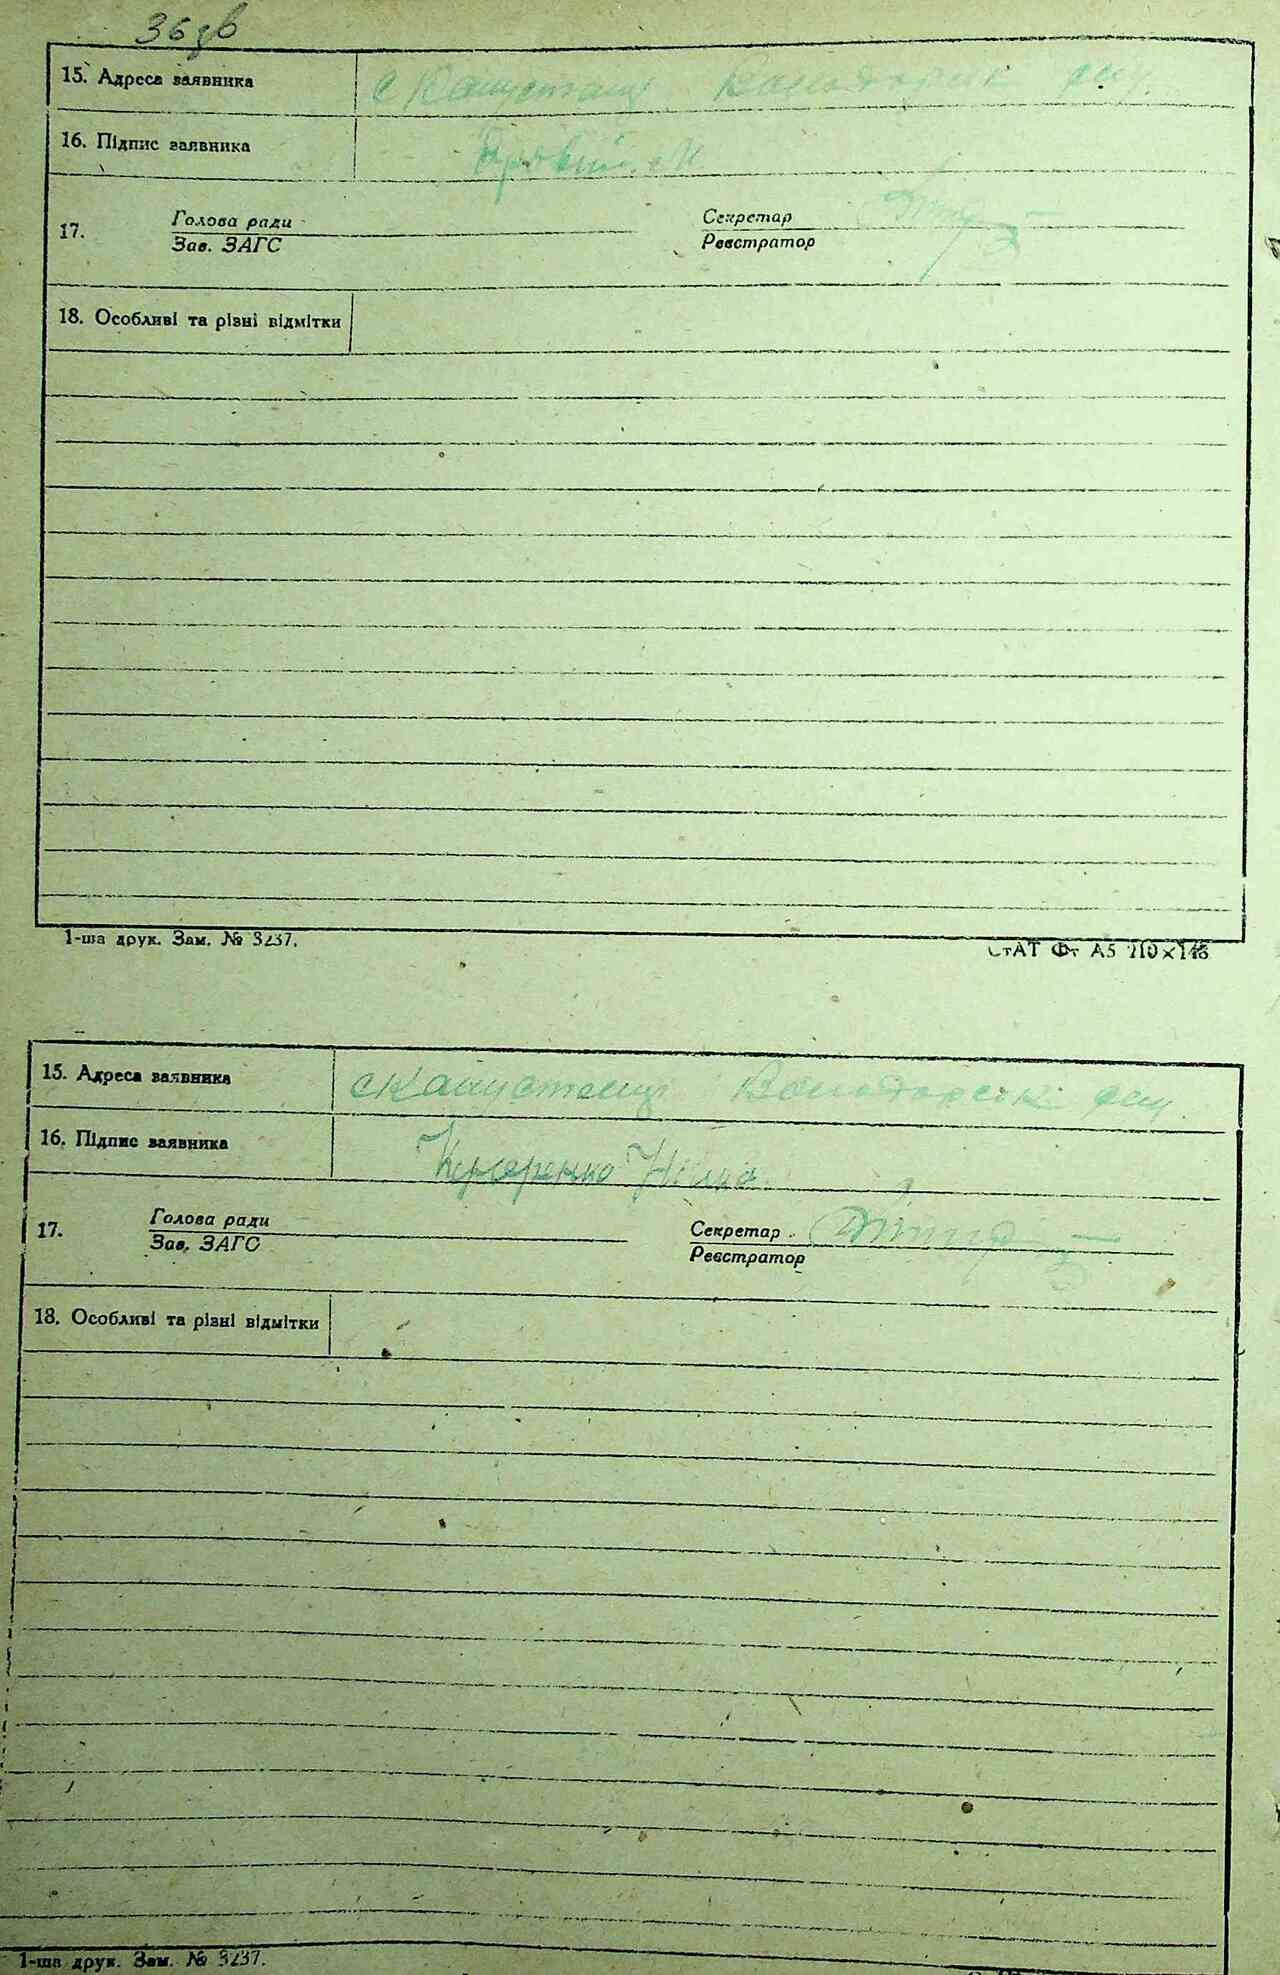 36зв
15. Адреса заявника с Капустинці Володарськ рну.
16. Підпис заявника
17. Голова ради Секретар
Зав. ЗАГС Реєстратор
18. Особливі та різні відмітки
1-ша друк. Зам. № 3237.
СтАТ Фт А5 210×148
15. Адреса заявника с Капустинці Володарськ рну.
16. Підпис заявника
17. Голова ради Секретар
Зав. ЗАГС Реєстратор
18. Особливі та різні відмітки
1-ша друк. Зам. № 3237.